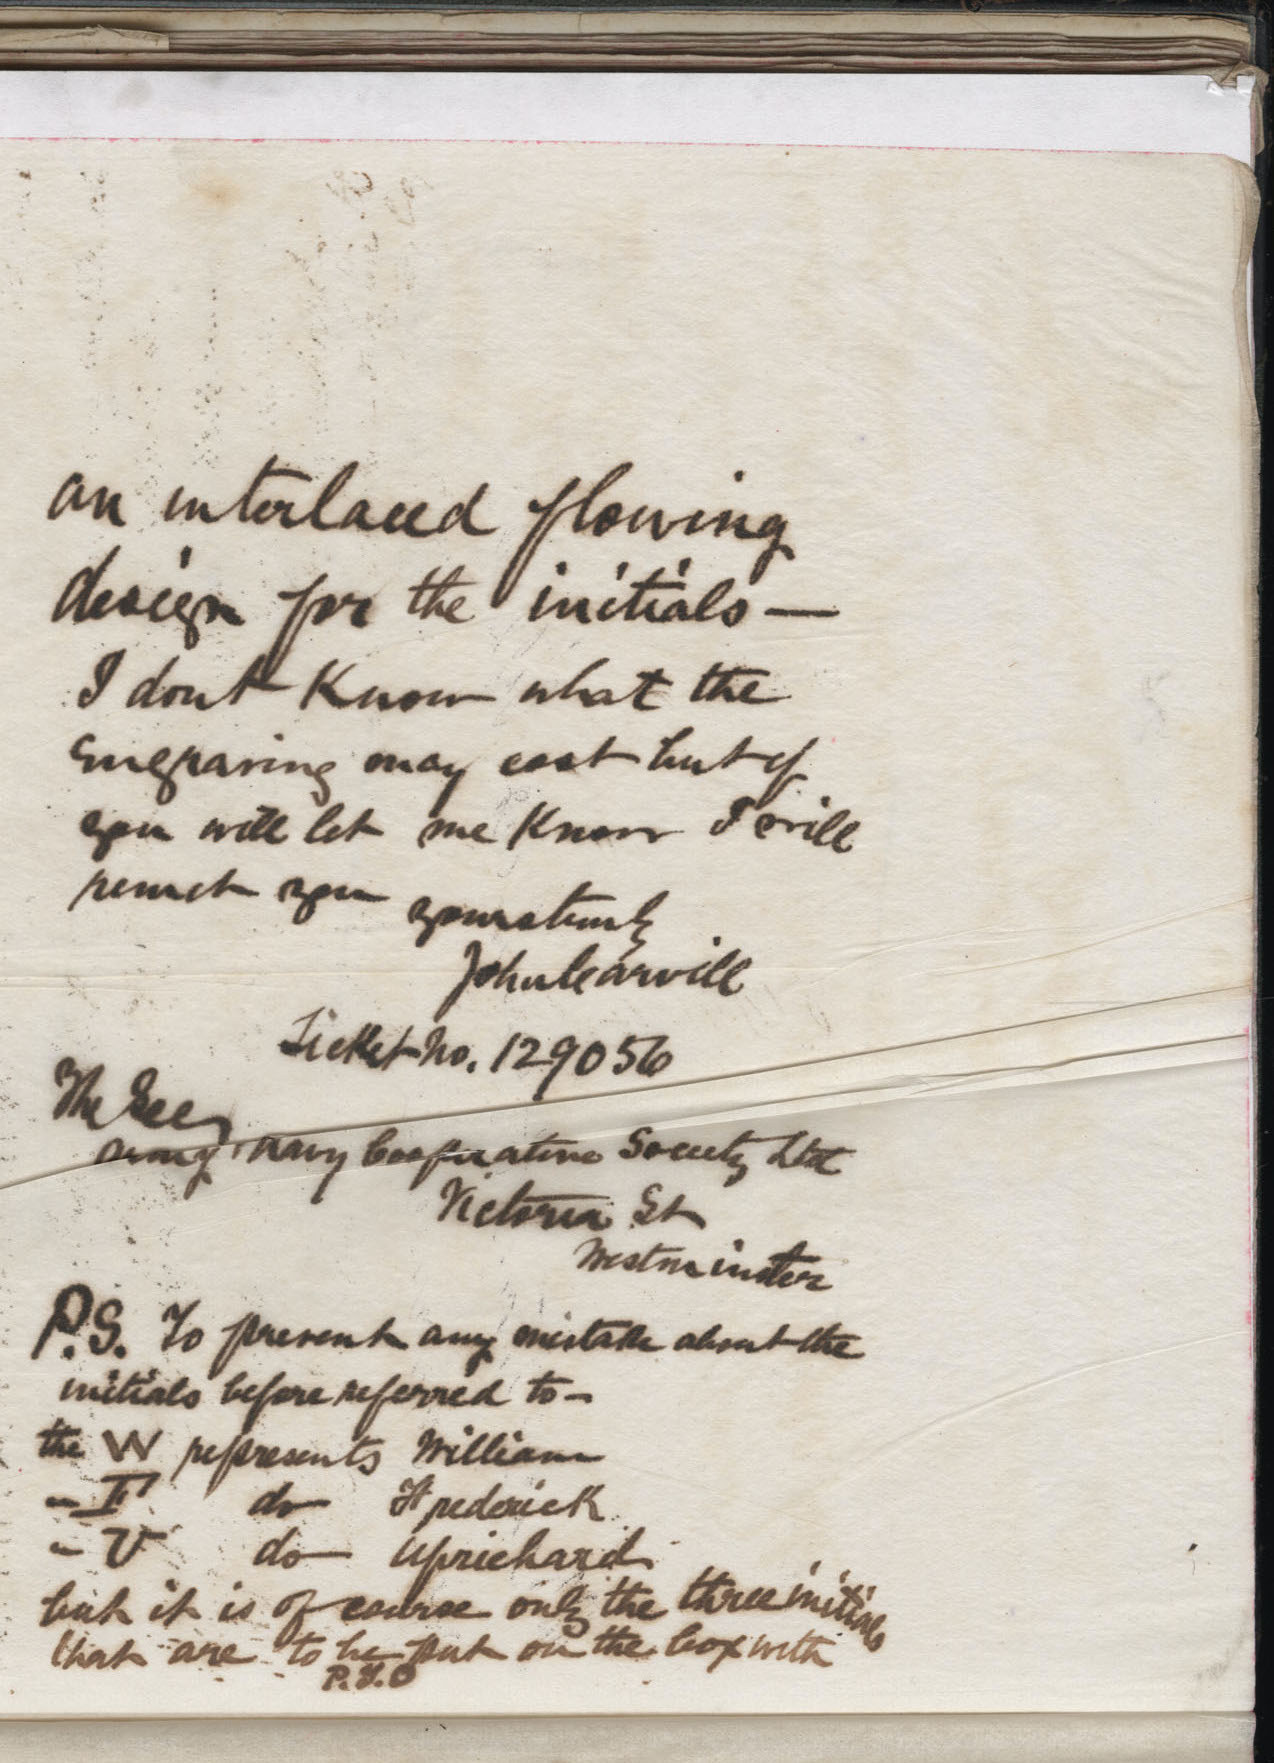 an interlaced flowing
design for the initials —
I dont Know what the
Engraving may cost but if
you will let me Know I will
remit you yours truly
John Carvill
Ticket No. 129056
The Secy
Army Navy Cooperative Society Ltd
Victoria St
Westminster
P.S. To prevent any mistake about the
initials before referred to -
the W represents William
- F do Frederick
- U do Uprichard
but it is of course only the three initials
that are to be put on the box with
P.T.O